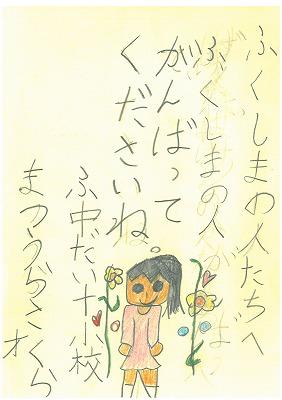 ふくしまの人たちへ
ふくしまの人
がんばって
くださいね
ふ中だい十小校
まつうらさくら